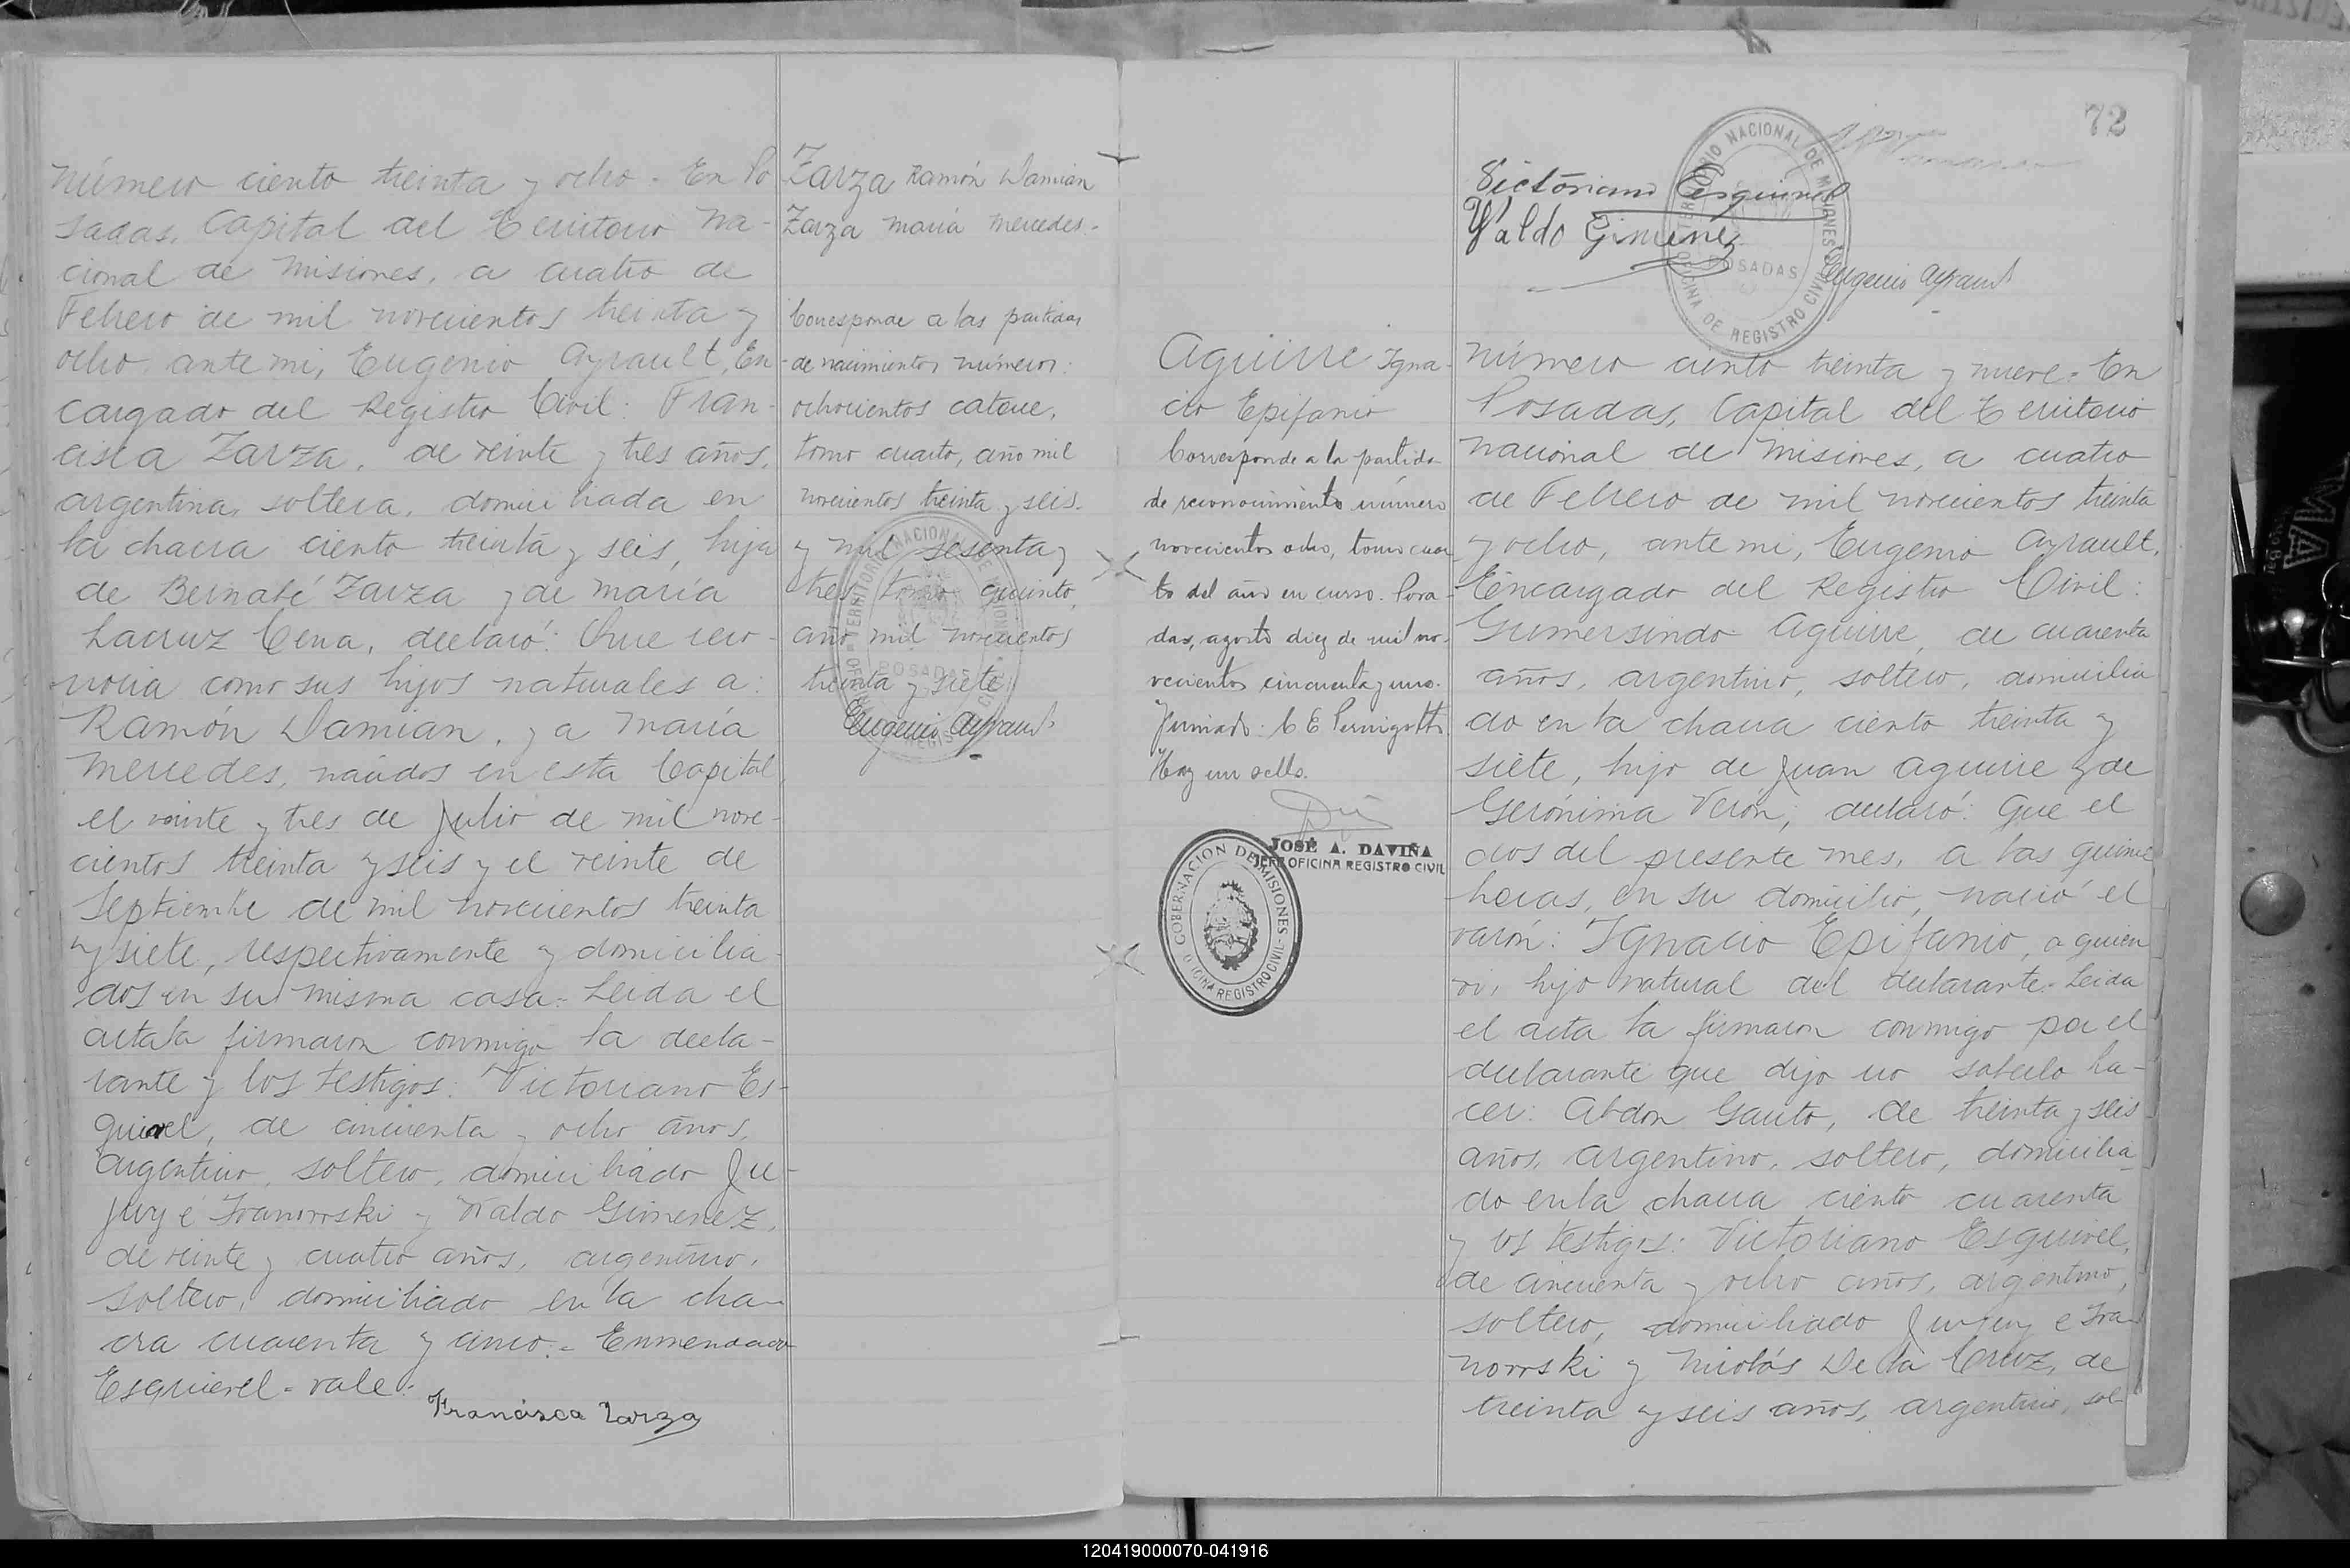 número ciento treinta y ocho - En Po
sadas, Capital del Territorio Na-
cional de Misiones, a cuatro de
Febrero de mil novecientos treinta y
ocho, ante mi, Eugenio Ayrault, En
cargado del Registro Civil: Fran-
cisca Zarza, de veinte y tres años,
argentina, soltera, domiciliada en
la chacra ciento treinta y seis, hija
de Bernabé Zarza y de María
Lacruz Cena, declaró: Que reco-
nocía como sus hijos naturales a:
Ramón Damian, y a María
Mercedes, nacidos en esta Capital,
el veinte y tres de Julio de mil nove-
cientos treinta y seis y el veinte de
Septiembre de mil novecientos treinta
y siete, respectivamente y domicilia-
dos en su misma casa.- Leida el
acta la firmaron conmigo la decla-
rante y los testigos: Victoriano Es-
quivel, de cincuenta y ocho años,
argentino, soltero, domiciliado Ju-
juy é Ivanowski y Waldo Gimenez,
de veinte y cuatro años, argentino,
soltero, domiciliado en la cha-
cra cuarenta y cinco.- Enmendado
Esquivel - vale.-
Francisca Zarza
Zarza Ramón Damian
Zarza María Mercedes.-
Corresponde a las partidas
de nacimientos números:
ochocientos catorce,
tomo cuarto, año mil
novecientos treinta y seis.
y mil sesenta y
tres tomo quinto,
año mil novecientos
treinta y siete
Eugenio Ayrault
TERRITORIO NACIONAL DE MISIONES
POSADAS
72
Victoriano Esquivel
Waldo Gimenez
Eugenio Ayrault
TERRITORIO NACIONAL DE MISIONES
POSADAS
OFICINA DE REGISTRO CIVIL
Aguirre Igna-
cio Epifanio
Corresponde a la partida
de reconocimiento número
novecientos ocho, tomo cuar
to del año en curso. Posa-
das, agosto diez de mil no-
vecientos cincuenta y uno.
Firmado: C E Pernigotti
Hay un sello.
JOSÉ A. DAVIÑA
JEFE OFICINA REGISTRO CIVIL
GOBERNACION DE MISIONES
OFICINA REGISTRO CIVIL
número ciento treinta y nueve.- En
Posadas, Capital del Territorio
Nacional de Misiones, a cuatro
de Febrero de mil novecientos treinta
y ocho, ante mi, Eugenio Ayrault,
Encargado del Registro Civil:
Gumersindo Aguirre, de cuarenta
años, argentino, soltero, domicilia
do en la chacra ciento treinta y
siete, hijo de Juan Aguirre y de
Gerónima Verón, declaró: Que el
dos del presente mes, a las quince
horas, en su domicilio, nació el
varón: Ignacio Epifanio, a quien
vi, hijo natural del declarante.- Leida
el acta la firmaron conmigo por el
declarante que dijo no saberlo ha-
cer: Abdon Gauto, de treinta y seis
años, argentino, soltero, domicilia-
do en la chacra ciento cuarenta
y los testigos: Victoriano Esquivel,
de cincuenta y ocho años, argentino,
soltero, domiciliado Jujuy e Iva-
nowski y Nicolás De la Cruz, de
treinta y seis años, argentino, sol-
120419000070-041916